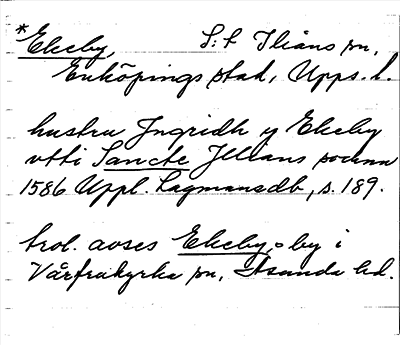 *Ekeby, S:t Iliāns sn,
Enköpings stad, Upps. l.
hustru Jngridh y Ekeby
vtti Sancte Jllians sochnn
1586 Uppl. Lagmansdb, s. 189.
trol. avses Ekeby, by i
Vårfrukyrka sn, Åsunda hd.